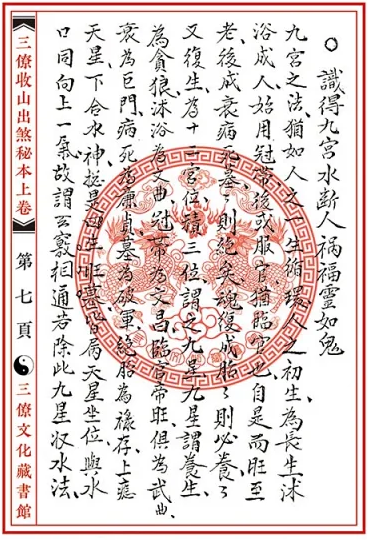 〇識得九宮水斷人禍福靈如鬼
九宮之法猶如人之一生循環人之初生為長生沐
浴成人始用冠帶後或服官猶臨官也自是而旺至
老後成衰病死墓則絕矣魂復成胎々則必養々
又復生為十二宮位積三位謂之九星九星謂養生
為貪狼沐浴為文曲冠帶為文昌臨官帝旺俱為武曲
衰為巨門病死為廉貞墓為破軍絕胎為祿存上應
天星下合水神總是生旺墓局天星坐位與水
口同向上一氣故謂玄竅相通若除此九星収水法
三僚收山出煞秘本上卷
第七頁
三僚文化藏書館